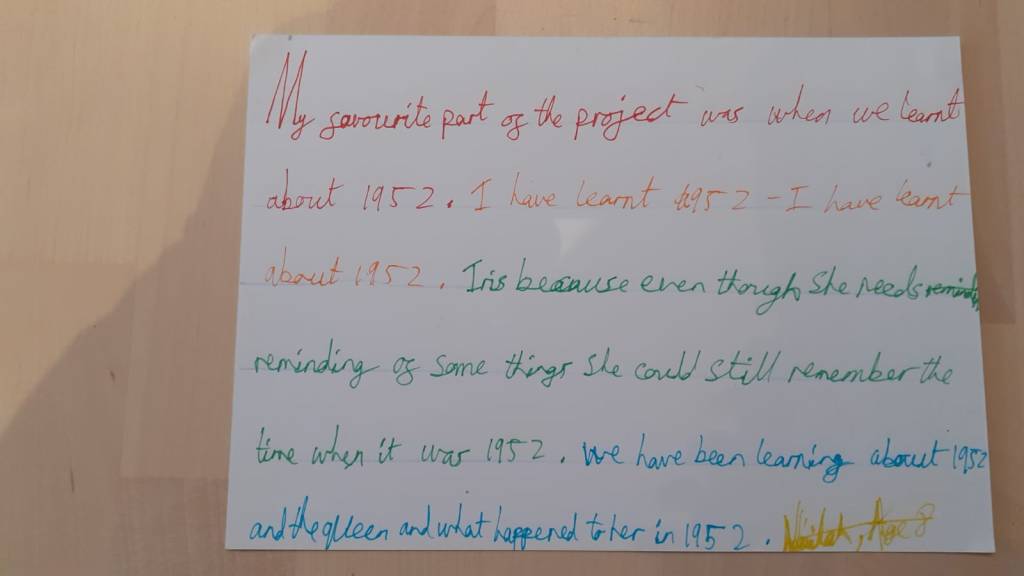 My favourite part of the project was when we learnt
about 1952. I have learnt 1952 - I have learnt
about 1952. Iris because even though she needs
reminding of some things she could still remember the
time when it was 1952. We have been learning about 1952
and the queen and what happened to her in 1952. Age 8